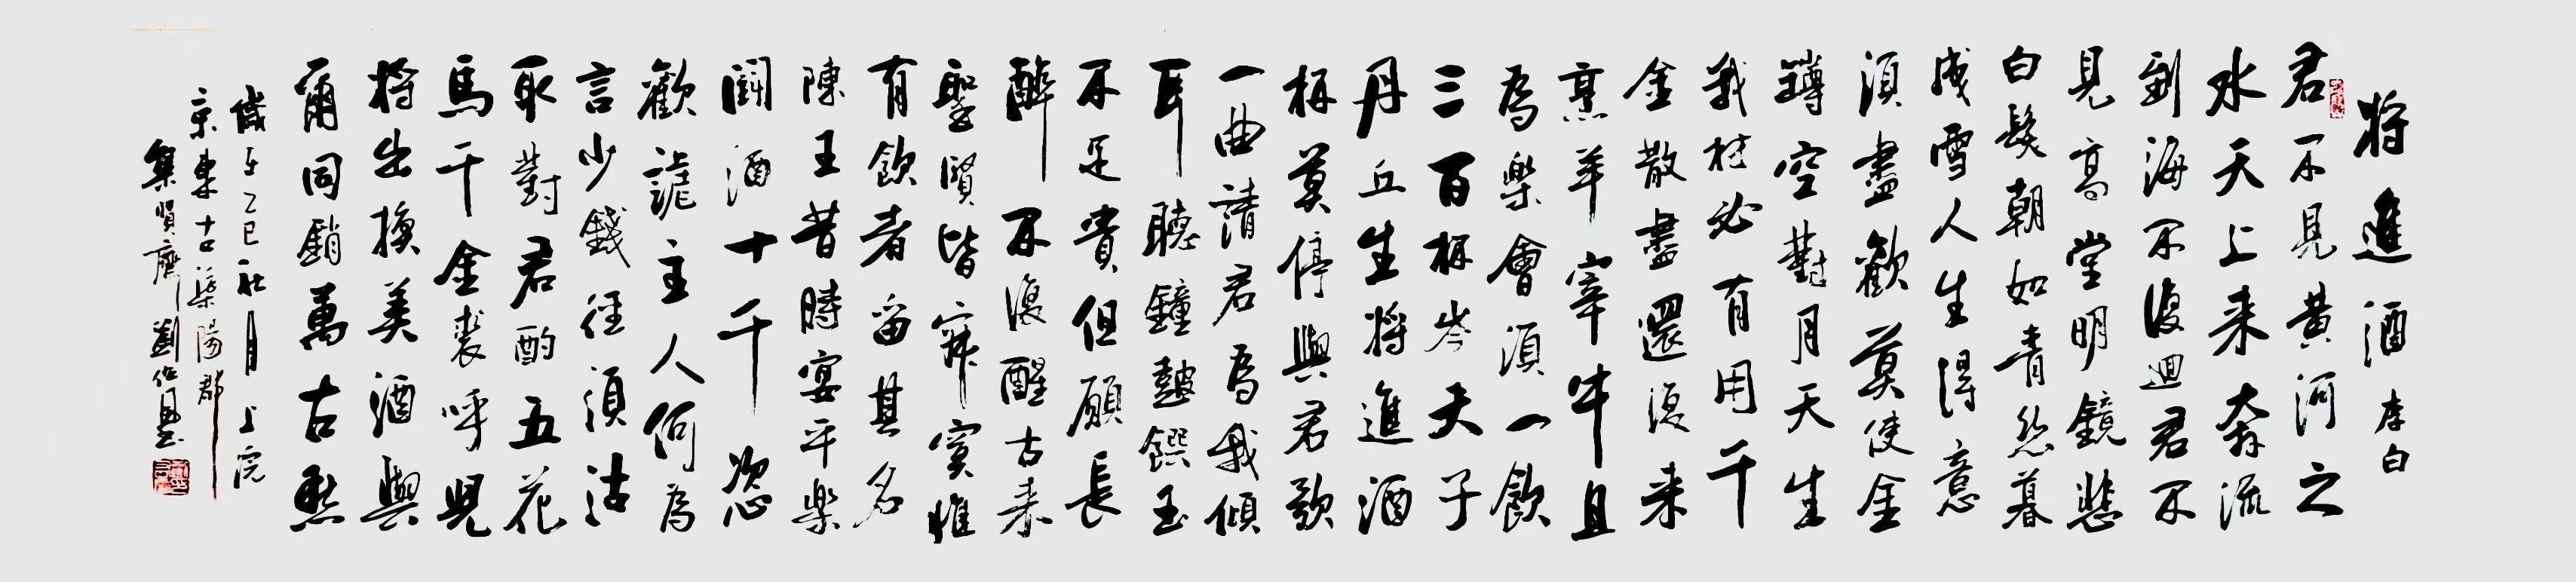 將進酒 李白
君不見黃河之
水天上来奔流
到海不復迴君不
見高堂明鏡悲
白髮朝如青絲暮
成雪人生得意
須盡歡莫使金
罇空對月天生
我材必有用千
金散盡還復来
烹羊宰牛且
為樂會須一飲
三百杯岑夫子
丹丘生將進酒
杯莫停與君歌
一曲請君為我傾
耳聽鐘鼓饌玉
不足貴但願長
醉不復醒古来
聖賢皆寂寞惟
有飲者留其名
陳王昔時宴平樂
鬭酒十千恣
歡謔主人何為
言少錢徑須沽
取對君酌五花
馬千金裘呼兒
將出換美酒與
爾同銷萬古愁
歲在乙巳秋月上浣
京東古渠陽郡
集賢齋劉